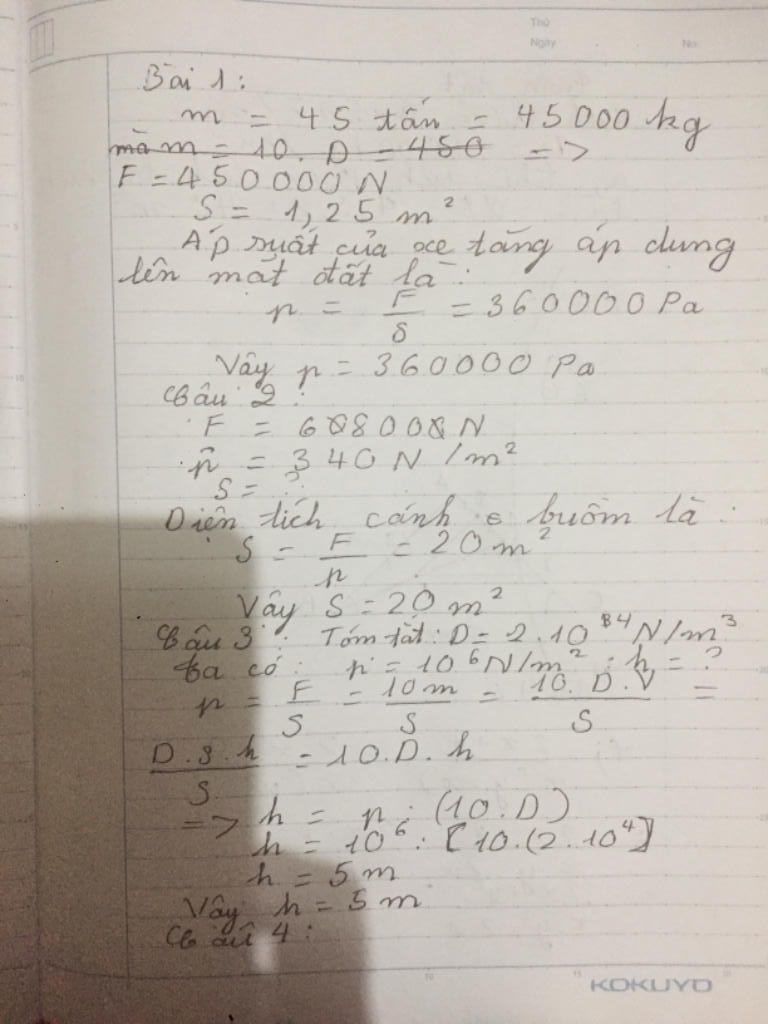 Thứ
Ngày
No
Bài 1:
m = 45 tấn = 45000 kg
mà m = 10. D = 450 =>
F = 450000 N
S = 1,25 m²
Áp suất của xe tăng áp dụng
lên mặt đất là:
p = F/S = 360000 Pa
Vậy p = 360000 Pa
Câu 2:
F = 6800 N
p = 340 N/m²
S = ?
Diện tích cánh buồm là:
S = F/p = 20 m²
Vậy S = 20 m²
Câu 3: Tóm tắt: D = 2.10⁴ N/m³
Ta có: p = 10⁶ N/m²; h = ?
p = F/S = 10m/S = 10.D.V/S =
D.S.h/S = 10.D.h
=> h = p : (10.D)
h = 10⁶ : [10.(2.10⁴]
h = 5 m
Vậy h = 5 m
Câu 4:
KOKUYO